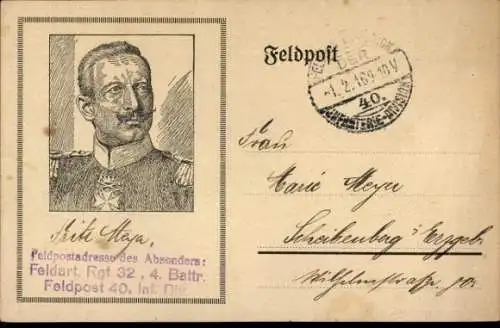 Feldpost
DER
-1.2.16 9-10V
40.
INFANTERIE-DIVISION
Frau
Marie Meyer
Scheibenberg Erzgeb
Wilhelmstrasse
Fritz Meyer,
Feldpostadresse des Absenders:
Feldart. Rgt 32, 4. Battr.
Feldpost 40. Inf. Div.